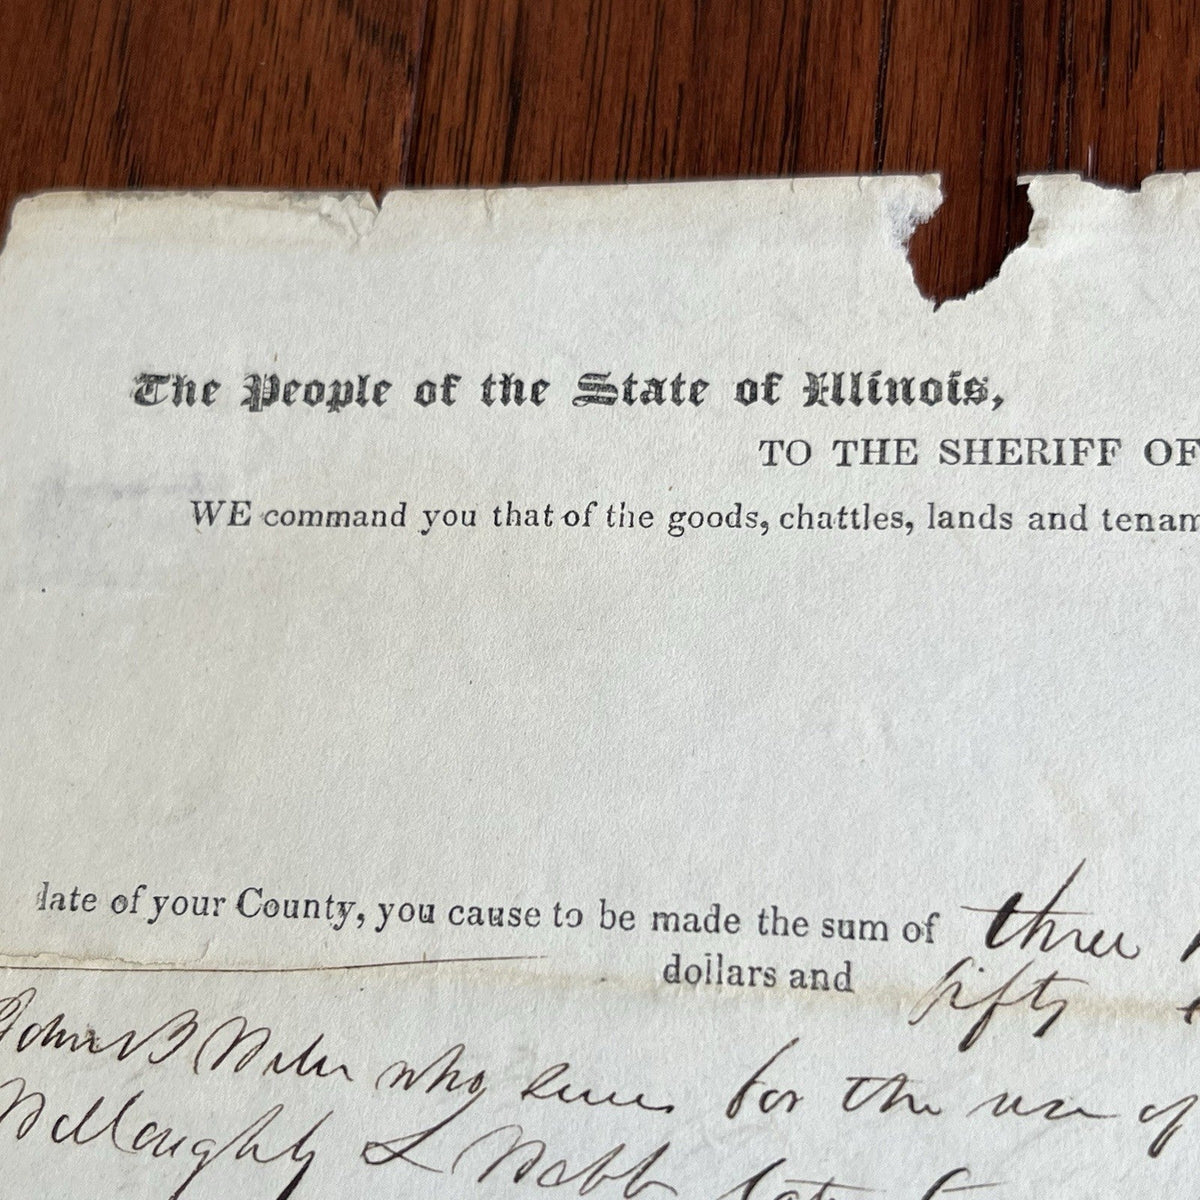 The People of the State of Illinois,
TO THE SHERIFF OF
WE command you that of the goods, chattles, lands and tenam
late of your County, you cause to be made the sum of three
dollars and fifty
John B who sues for the use of
Willoughby L Webb late